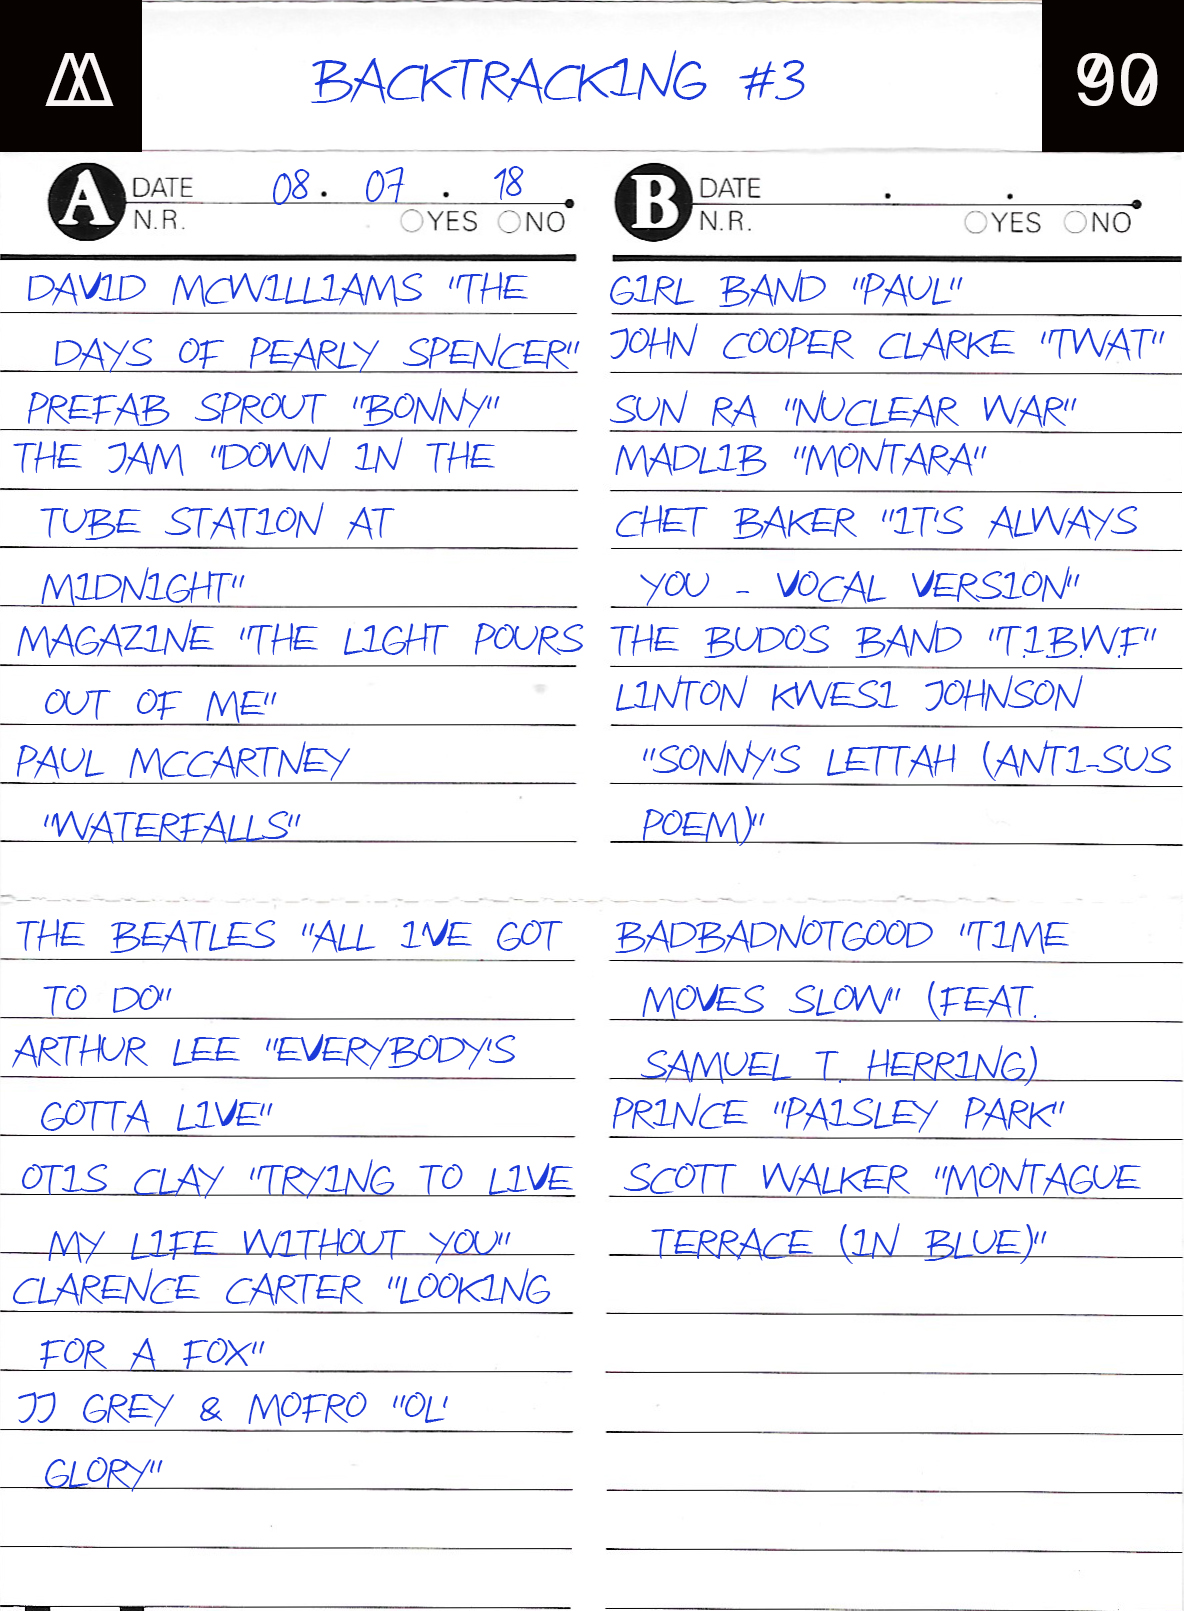 M
BACKTRACKING #3
90
A DATE 08. 07. 18
N.R. YES NO
DAVID MCWILLIAMS "THE
DAYS OF PEARLY SPENCER"
PREFAB SPROUT "BONNY"
THE JAM "DOWN IN THE
TUBE STATION AT
MIDNIGHT"
MAGAZINE "THE LIGHT POURS
OUT OF ME"
PAUL MCCARTNEY
"WATERFALLS"
THE BEATLES "ALL I'VE GOT
TO DO"
ARTHUR LEE "EVERYBODY'S
GOTTA LIVE"
OTIS CLAY "TRYING TO LIVE
MY LIFE WITHOUT YOU"
CLARENCE CARTER "LOOKING
FOR A FOX"
JJ GREY & MOFRO "OL'
GLORY"
B DATE . .
N.R. YES NO
GIRL BAND "PAUL"
JOHN COOPER CLARKE "TWAT"
SUN RA "NUCLEAR WAR"
MADLIB "MONTARA"
CHET BAKER "IT'S ALWAYS
YOU - VOCAL VERSION"
THE BUDOS BAND "T.I.B.W.F"
LINTON KWESI JOHNSON
"SONNY'S LETTAH (ANTI-SUS
POEM)"
BADBADNOTGOOD "TIME
MOVES SLOW" (FEAT.
SAMUEL T. HERRING)
PRINCE "PAISLEY PARK"
SCOTT WALKER "MONTAGUE
TERRACE (IN BLUE)"